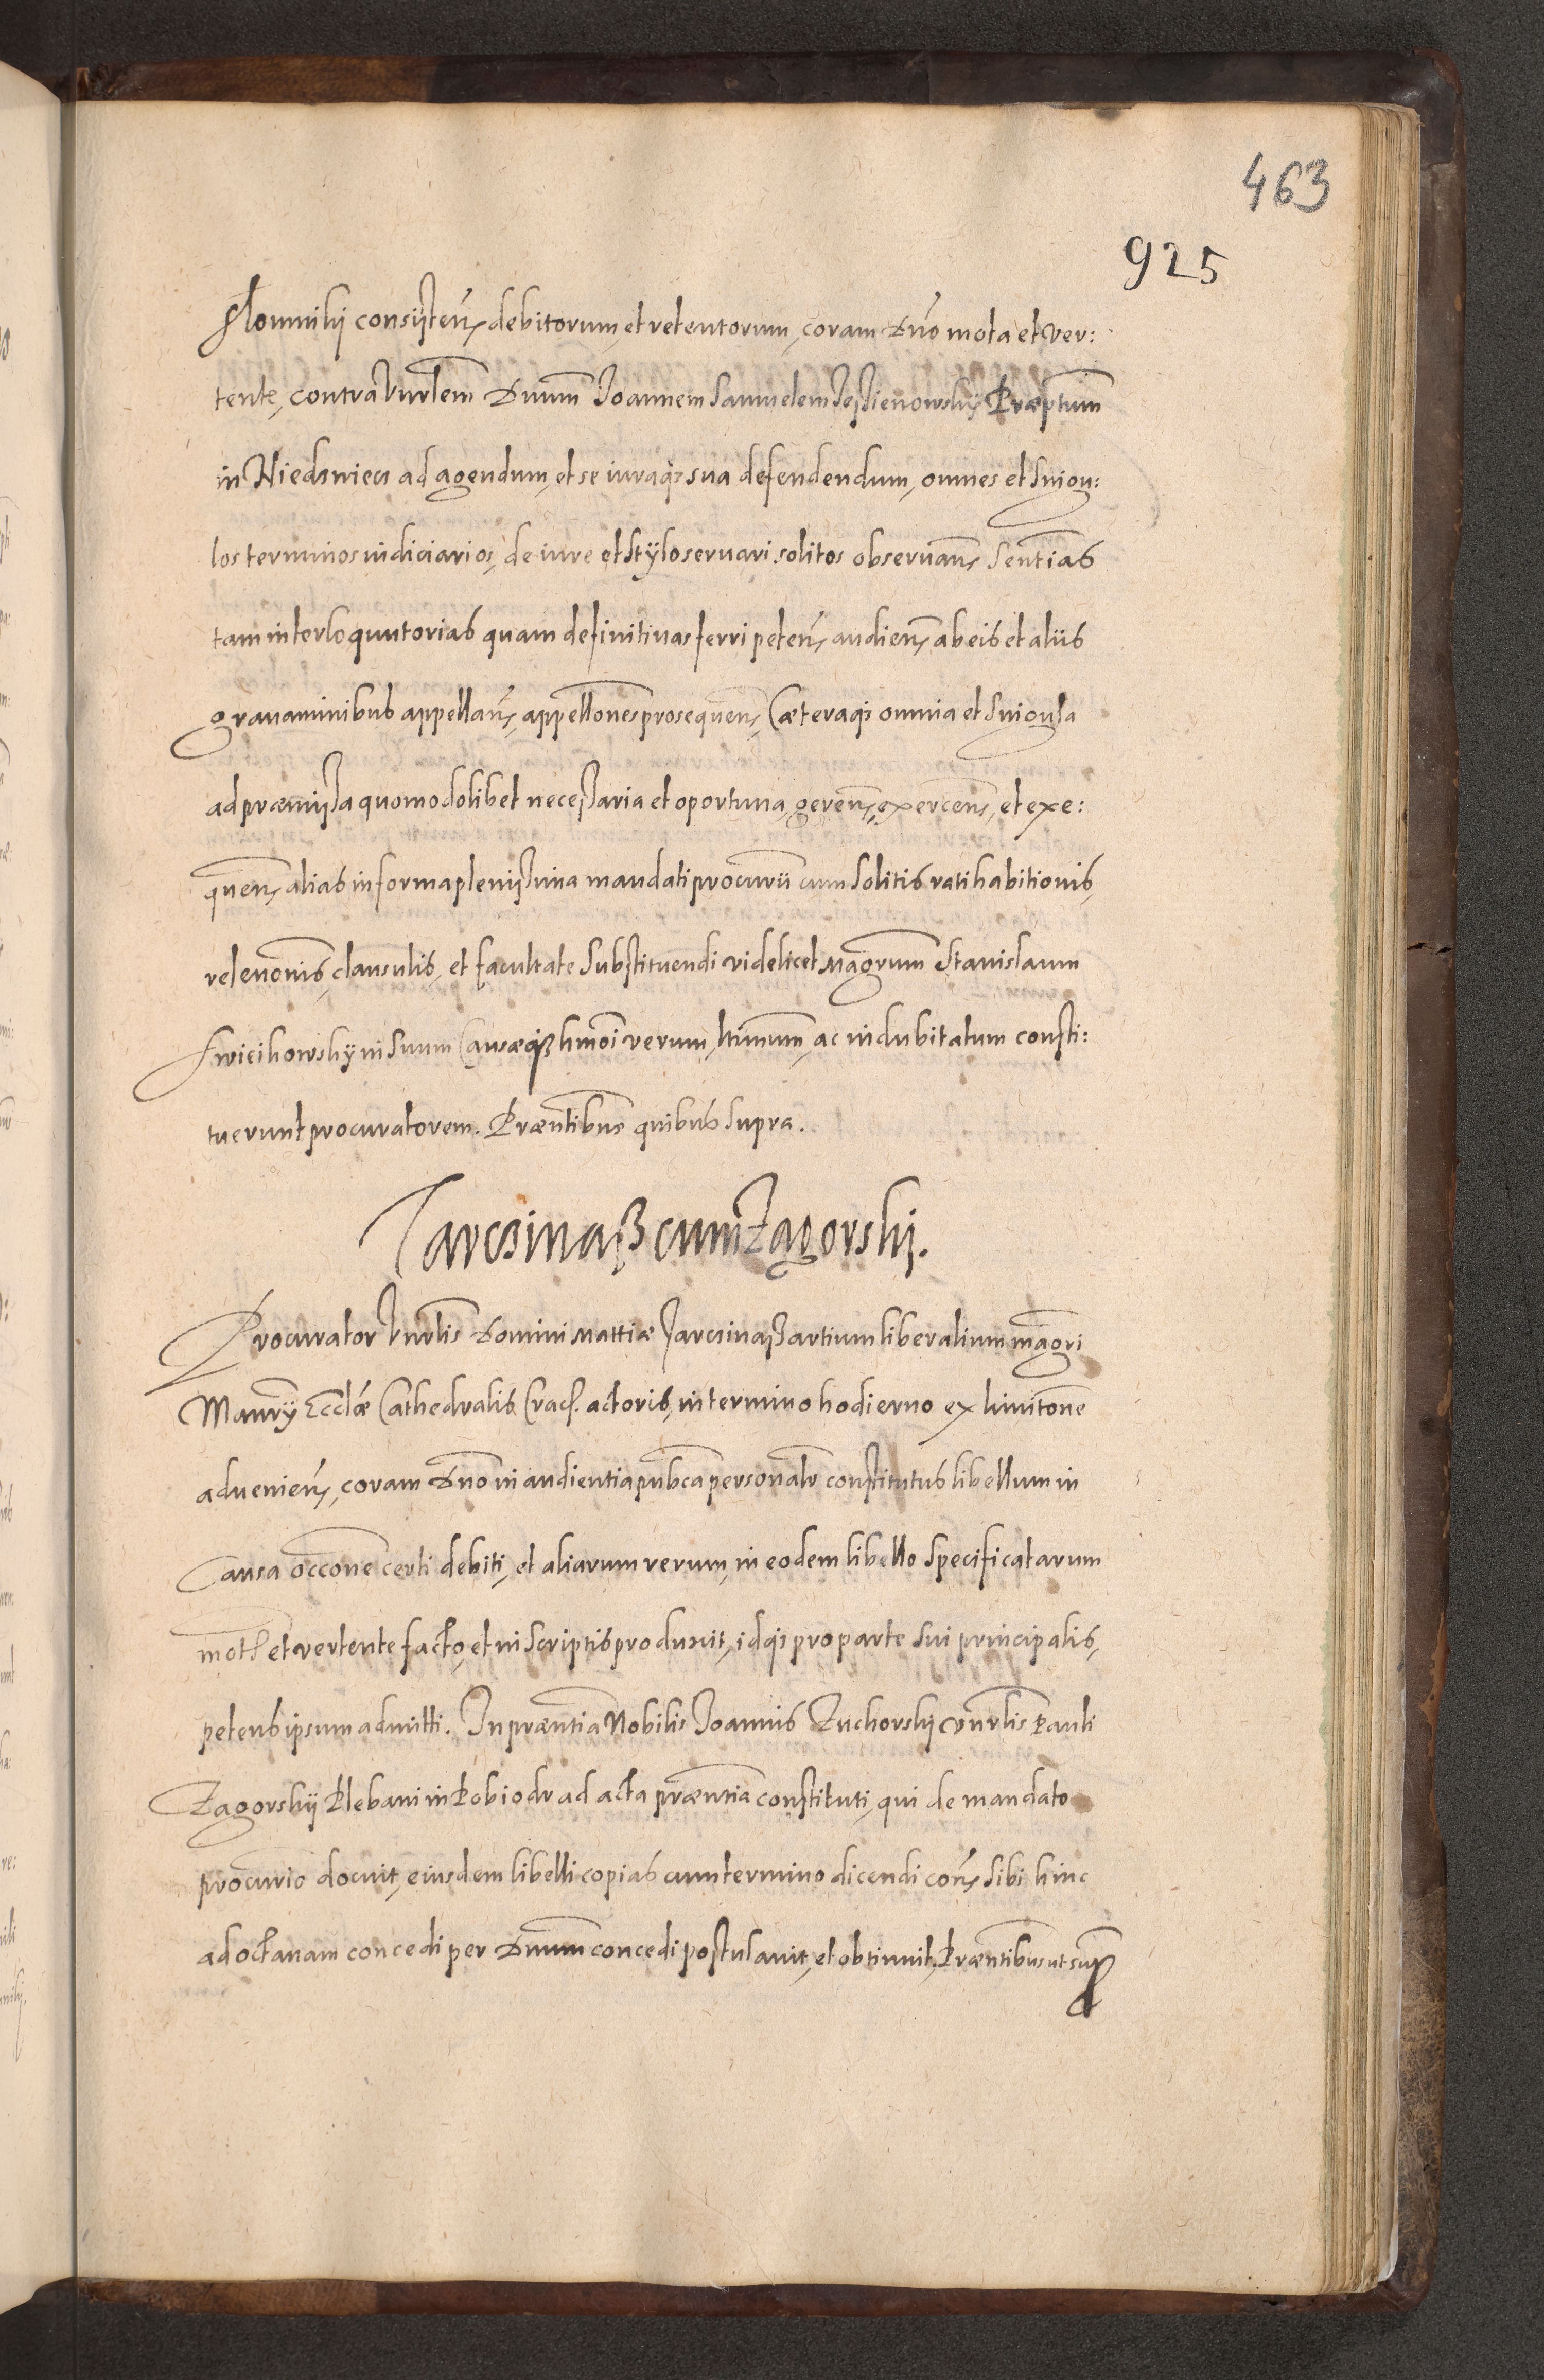 463
925
Slomniki consisten, debitorum, et retentorum, coram Dno mota et ver:
tente, contra Vnrlem Dnum Joannem Samuelem Præptum
in ad agendum, et se iuraq3 sua defendendum, omnes et singu:
los terminos iudiciarios, de iure et stylo seruari solitos obseruan, sentias
tam interloquutorias quam definitiuas ferri peten, audien, ab eis et aliis
grauaminibus appellan, appellones prosequen, Cæteraq3 omnia et singula
ad præmissa quomodolibet necessaria et oportuna, geren, exercen, et exe:
quen, alias in forma plenissima mandati procurii cum solitis ratihabitionis,
releuonis, clausulis, et facultate substituendi videlicet Magrum Stanislaum
in suum Causæq3 hmoi verum, ltimum, ac indubitatum consti:
tuerunt procuratorem. Præntibus quibus supra.
Jarczinass cum Zagorski.
Procurator Vnrlis Domini Mattiæ Jarczinass artium liberalium magri
Manrij Ecclæ Cathedralis Crac. actoris, in termino hodierno ex limitone
adueniens, coram Dno in audientia pubca personalr constitutus libellum in
Causa occone certi debiti, et aliarum rerum, in eodem libello specificatarum
mota et vertente facto, et in scriptis produxit, idq3 pro parte sui principalis,
petens ipsum admitti. In præntia Nobilis Joannis Zuchorski vnrlis Pauli
Zagorskij Plebani in Pobiodr ad acta præntia constituti, qui de mandato
procurio docuit, eiusdem libelli copias cum termino dicendi con, sibi hinc
ad octauam concedi per Dnum concedi postulauit, et obtinuit. Præntibus ut supra